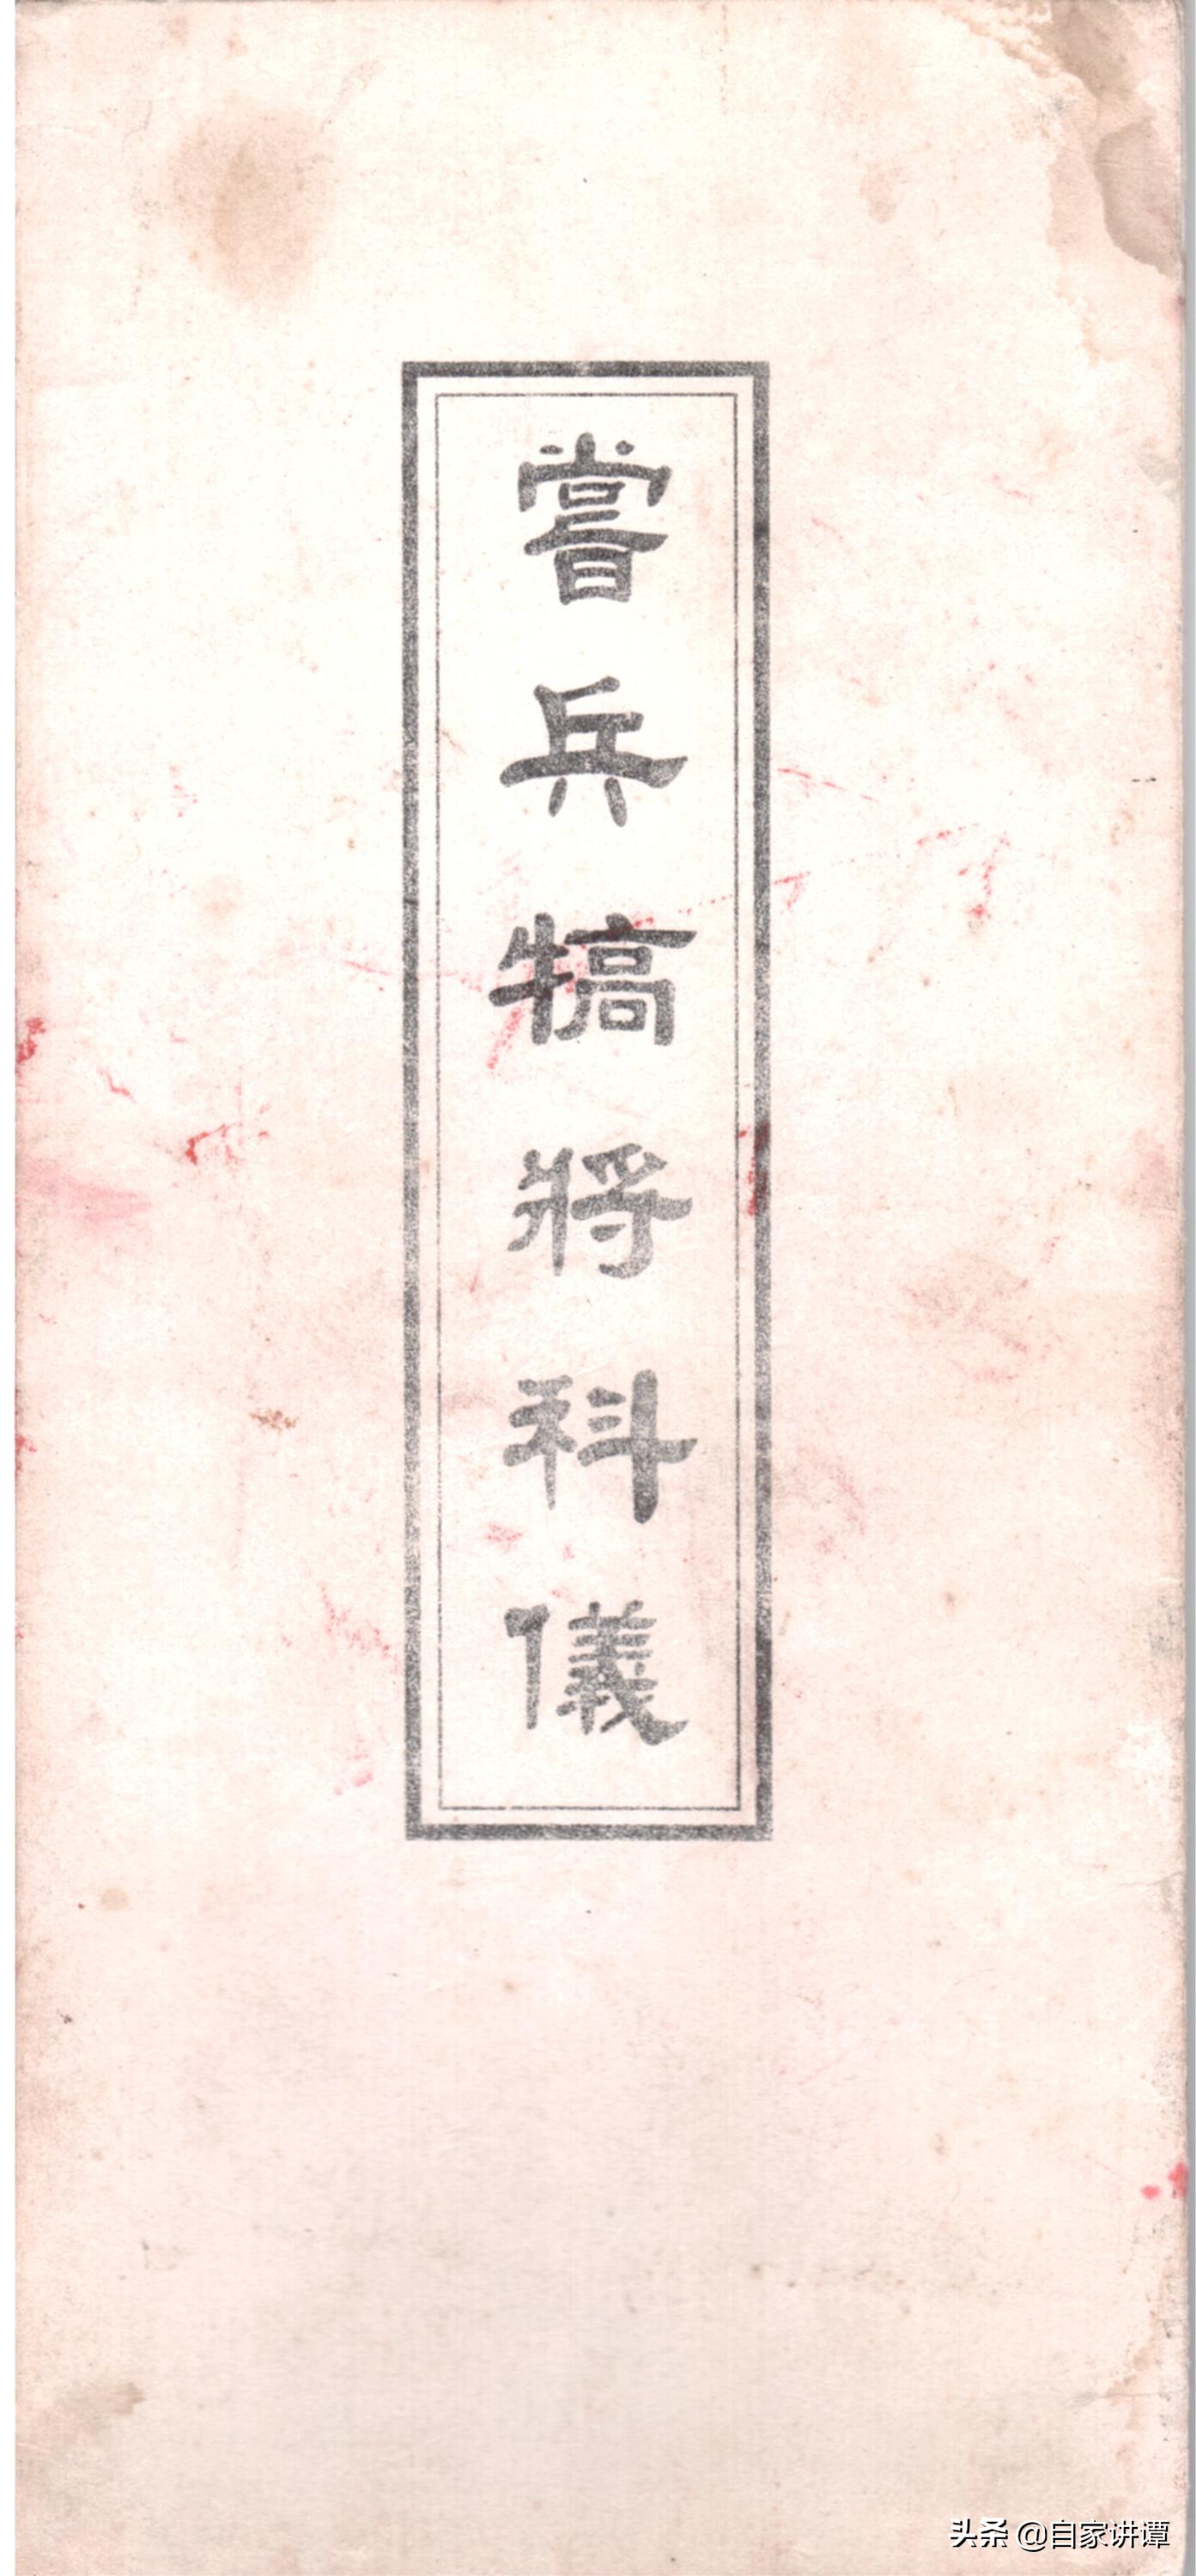 嘗兵犒將科儀
头条 @自家讲谭